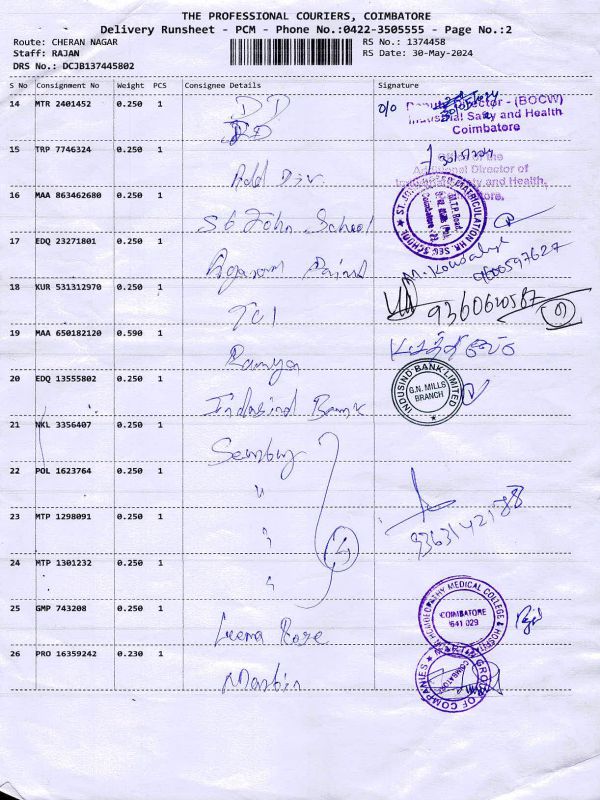 THE PROFESSIONAL COURIERS, COIMBATORE
Delivery Runsheet - PCM - Phone No.:0422-3505555 - Page No.:2
Route: CHERAN NAGAR
RS No.: 1374458
Staff: RAJAN
RS Date: 30-May-2024
DRS No.: DCJB137445802
S No Consignment No Weight PCS Consignee Details Signature
14 MTR 2401452 0.250 1 DD
Deputy Director - (BOCW)
Industrial Safty and Health
Coimbatore
15 TRP 7746324 0.250 1 Add Dir.
Office of the
Additional Director of
Industrial Safety and Health,
16 MAA 863462680 0.250 1 St. John School
MATRICULATION HR. SEC. SCHOOL
M.T.P. Road,
17 EDQ 23271801 0.250 1 Agarwal
M. Kowsalya
9600597627
18 KUR 531312970 0.250 1 TCI
9360620587
19 MAA 650182120 0.590 1 Ramya
20 EDQ 13555802 0.250 1 Indusind Bank
INDUSIND BANK LIMITED
G.N. MILLS
BRANCH
21 NKL 3356407 0.250 1
22 POL 1623764 0.250 1 "
23 MTP 1298091 0.250 1 "
4
24 MTP 1301232 0.250 1 "
25 GMP 743208 0.250 1 Leema Rose
HOMOEOPATHY MEDICAL COLLEGE & HOSPITAL
COIMBATORE
641 029
26 PRO 16359242 0.230 1 Martin
MARTIN GROUP OF COMPANIES
COIMBATORE